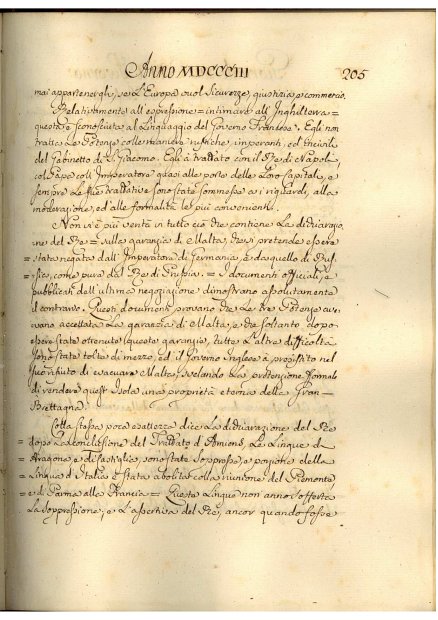 Anno MDCCCIII 205
mai appartenergli, se l'Europa vuol Sicurezza, giustizia, e commercio.
Relativamente all'espressione = intimare all'Inghilterra =
questa è sconosciuta al Linguaggio del Governo Francese. Egli non
tratta Le Potenze colle maniere rustiche, imperanti, ed incivili
del Gabinetto di S. Giacomo. Egli à trattato con il Re di Napoli,
col Papa, coll'Imperatore quasi alle porte delle Loro Capitali, e
sempre Le sue trattative sono state sommesse ai riguardi, alla
moderazione, ed alle formalità le più convenienti.
Non vi è più verità in tutto ciò che contiene La dichiarazio,
ne del Re = sulla garanzia di Malta, che si pretende essere
= stata negata dall'Imperatore di Germania, e da quello di Rus,
= sia, come pure dal Re di Prussia. = I documenti officiali, e
pubblicati dell'ultima negoziazione dimostrano assolutamente
il contrario. Questi documenti provano che Le tre Potenze ave,
vano accettata La garanzia di Malta, e che soltanto dopo
essere state ottenute queste garanzie, tutte L'altre difficoltà
sono state tolte di mezzo, ed il Governo Inglese à persistito nel
suo rifiuto di evacuare Malta, svelando La pretenzione formale
di rendere quest'Isola una proprietà eterna della Gran =
= Brettagna.
Colla stessa poca esattezza dice La dichiarazione del Re
dopo La conclusione del Trattato di Amiens, Le Lingue di
= Aragona, e di Castiglia, sono state soppresse, e porzione della
= Lingua d'Italia è stata abolita colla riunione del Piemonte,
= e di Parma alla Francia = Queste Lingue non anno sofferta
La soppressione; e L'asserliva del Re, ancor quando fosse